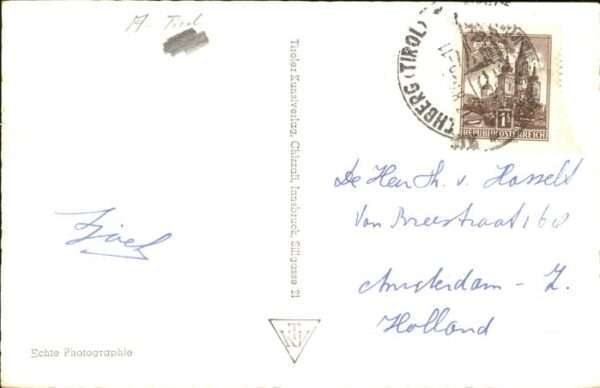 A - Tirol
CHBERG (TIROL)
1S
REPUBLIK ÖSTERREICH
Tiroler Kunstverlag, Chizzali, Innsbruck, Sillgasse 21
De Heer Th. v. Hasselt
Van Breestraat 168
Amsterdam - Z.
Holland
TKV
Echte Photographie